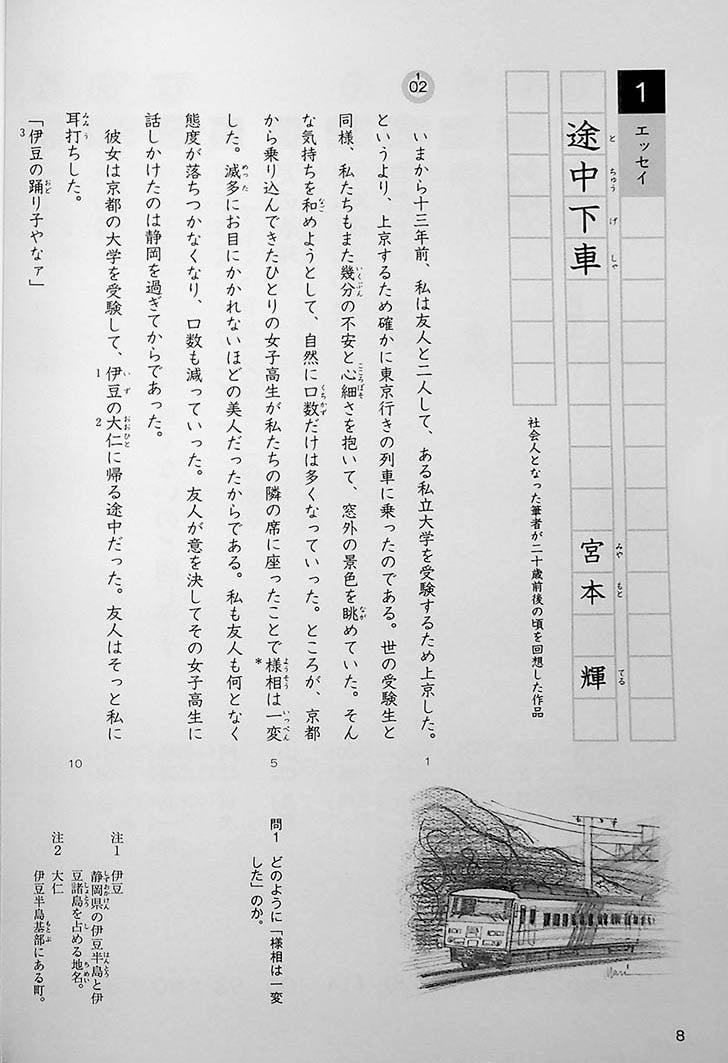 1
エッセイ
途中下車
とちゅうげしゃ
宮本 輝
みやもと てる
社会人となった筆者が二十歳前後の頃を回想した作品
1
02
いまから十三年前、私は友人と二人して、ある私立大学を受験するため上京した。
というより、上京するため確かに東京行きの列車に乗ったのである。世の受験生と
同様、私たちもまた幾分の不安と心細さを抱いて、窓外の景色を眺めていた。そん
な気持ちを和めようとして、自然に口数だけは多くなっていった。ところが、京都
から乗り込んできたひとりの女子高生が私たちの隣の席に座ったことで様相は一変
した。滅多にお目にかかれないほどの美人だったからである。私も友人も何となく
態度が落ちつかなくなり、口数も減っていった。友人が意を決してその女子高生に
話しかけたのは静岡を過ぎてからであった。
彼女は京都の大学を受験して、伊豆の大仁に帰る途中だった。友人はそっと私に
耳打ちした。
「伊豆の踊り子やなァ」
1
5
10
問1 どのように「様相は一変
した」のか。
注1 伊豆
静岡県の伊豆半島と伊
豆諸島を占める地名。
注2 大仁
伊豆半島基部にある町。
8